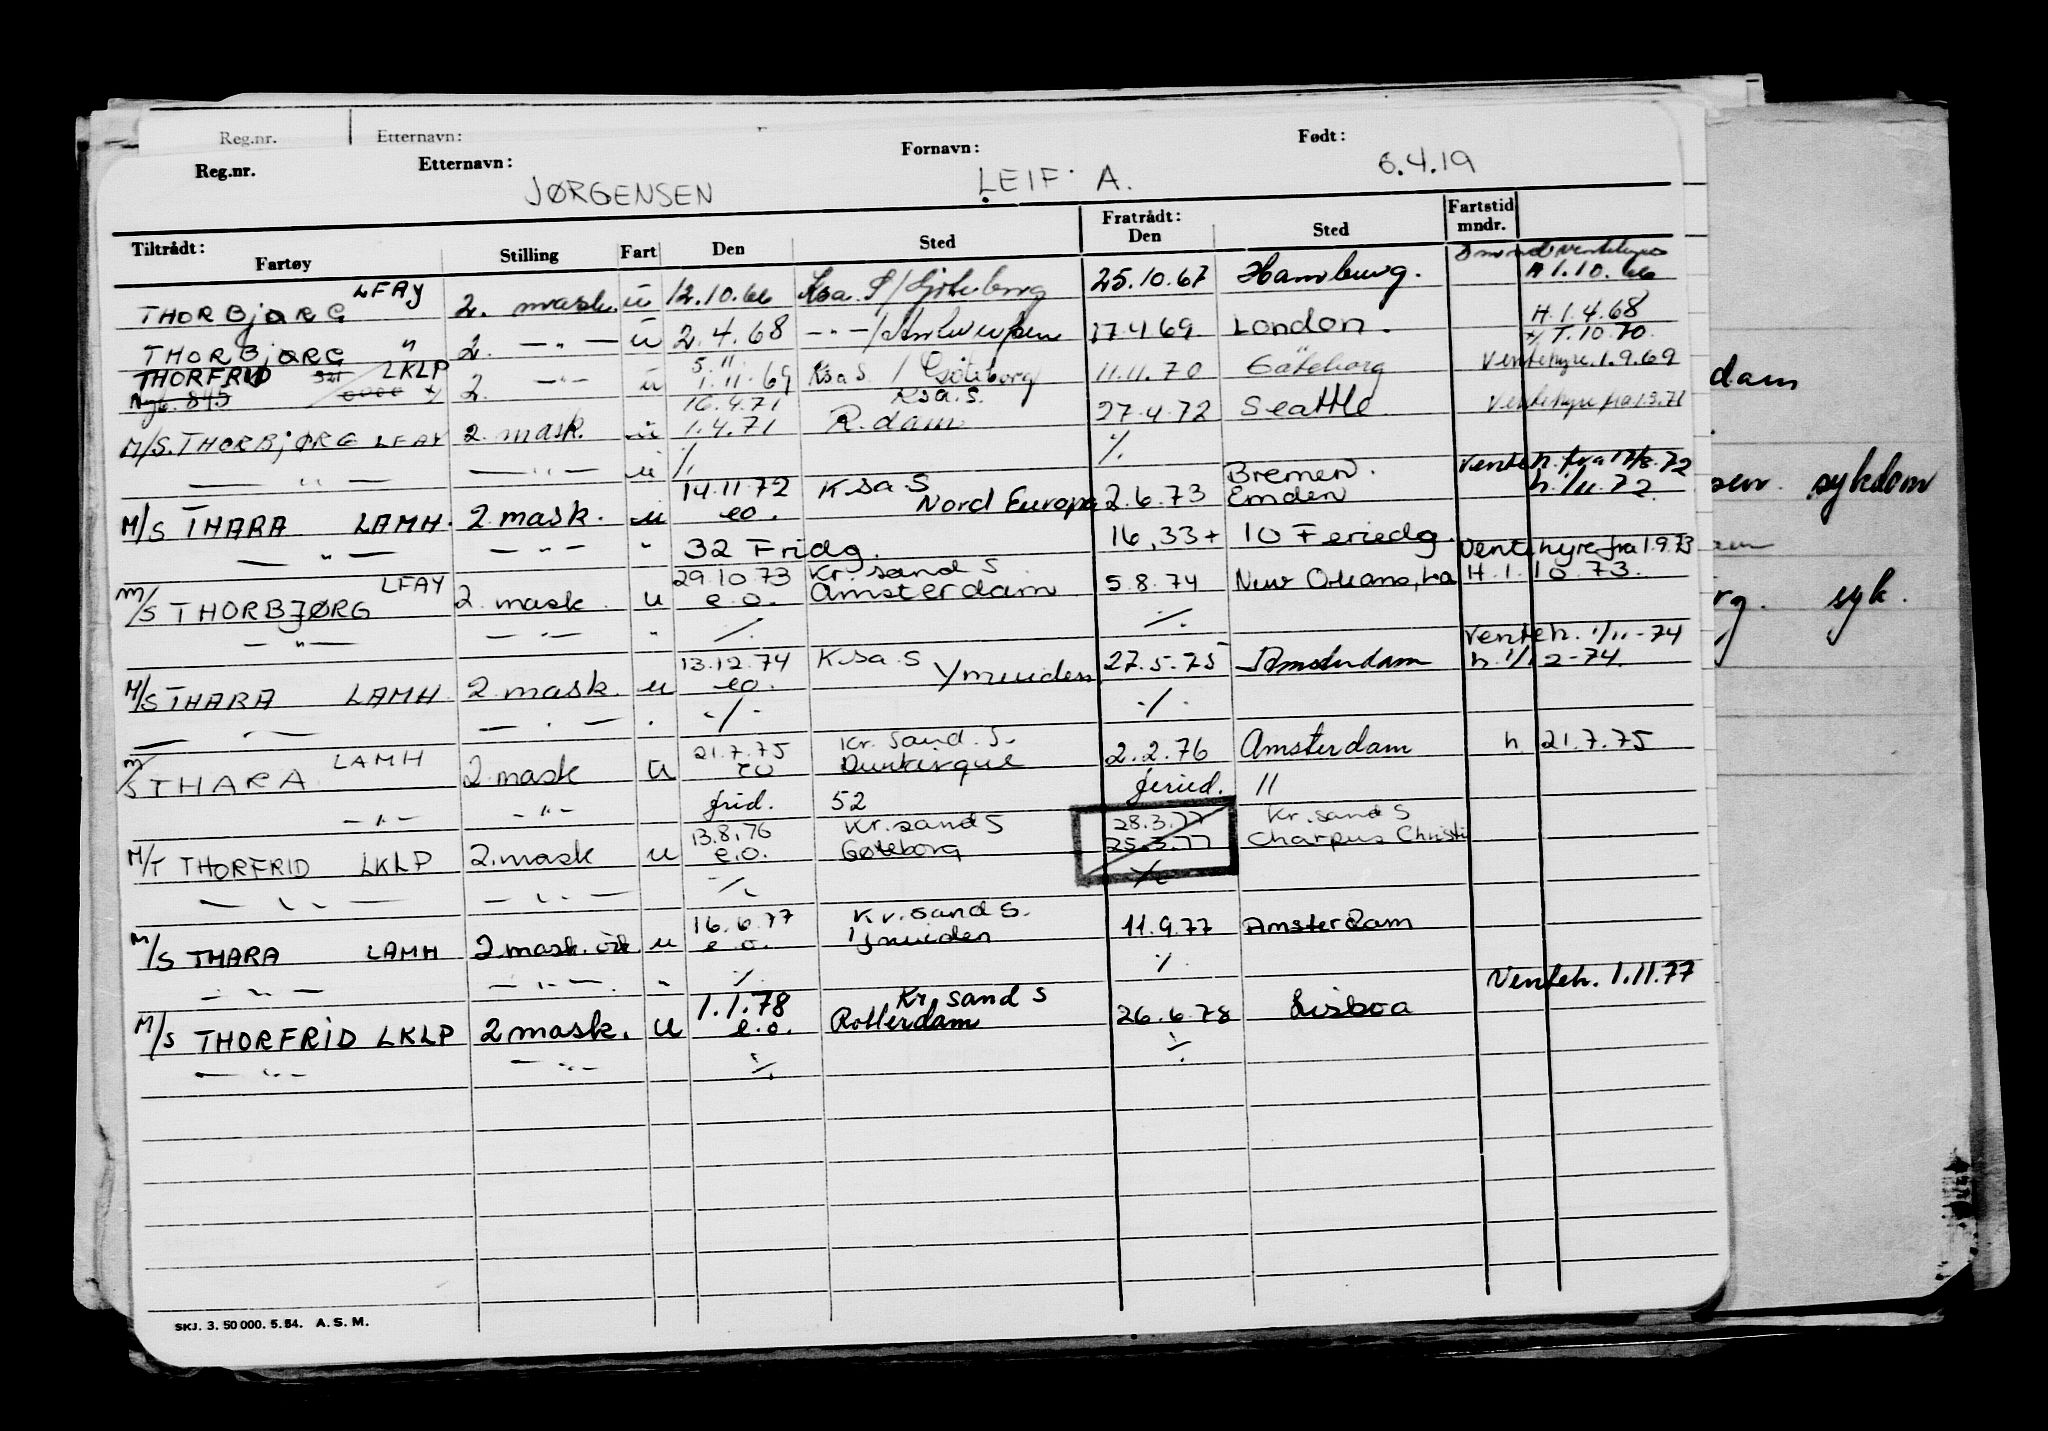 Reg.nr. Etternavn:
Reg.nr. Etternavn: JØRGENSEN Fornavn: LEIF A. Født: 6.4.19
Tiltrådt: Fratrådt: Fartstid
Fartøy Stilling Fart Den Sted Den Sted mndr.
THORBJØRG LFAY 2. mask. u 12.10.66 Ksa. S/Gøteborg 25.10.67 Hamburg. H 1.10.66
THORBJØRG " 2. -"- u 2.4.68 -"-/Antwerpen 17.4.69 London. H. 1.4.68
x/ T.10.70.
THORFRID LKLP 2. -"- u 5.11 1.11.69 Ksa S. / Göteborg 11.11.70 Göteborg Ventehyre 1.9.69
Nyb. 845
M/S. THORBJØRG LFAY 2. mask. u 16.4.71 1.4.71 Ksa. S. R.dam 27.4.72 Seattle Ventehyre fra 1.3.71
-"- -"- u % % Venteh. fra 17/8.72
M/S THARA LAMH. 2 mask. u 14.11.72 eo. Ksa S Nord Europa 2.6.73 Bremen. Emden h. 1/11.72
-"- -"- " 32 Fridg. 16,33+ 10 Feriedg. Ventehyre fra 1.9.73
M/S THORBJØRG LFAY 2. mask u 29.10.73 e.o. Kr.sand S Amsterdam 5.8.74 New Orleans, La H. 1.10.73.
-"- -"- " % % Venteh. 1/11-74
M/S THARA LAMH 2 mask. u 13.12.74 eo. Ksa. S Ymuiden 27.5.75 Amsterdam h. 1/12-74.
-"- -"- " % %
M/S THARA LAMH 2 mask u 21.7.75 eo Kr. Sand. S. Dunkirque 2.2.76 Amsterdam h 21.7.75
-"- -"- frid. 52 feried. 11
M/T THORFRID LKLP 2. mask u 13.8.76 e.o. Kr.sand S Gøteborg 28.3.77 25.3.77 Kr.sand S Charpus Christi
-"- -"- % %
M/S THARA LAMH 2 mask. u 16.6.77 e.o. Kr.sand S. Ijmuiden 11.9.77 Amsterdam
-"- -"- " % % Venteh. 1.11.77
M/S THORFRID LKLP 2 mask. u 1.1.78 e.o. Kr.sand S Rotterdam 26.6.78 Lisboa
-"- -"- % %
SKJ. 3. 50 000. 5. 64. A. S. M.
dam
sen. sykdom
am
rg. syk.